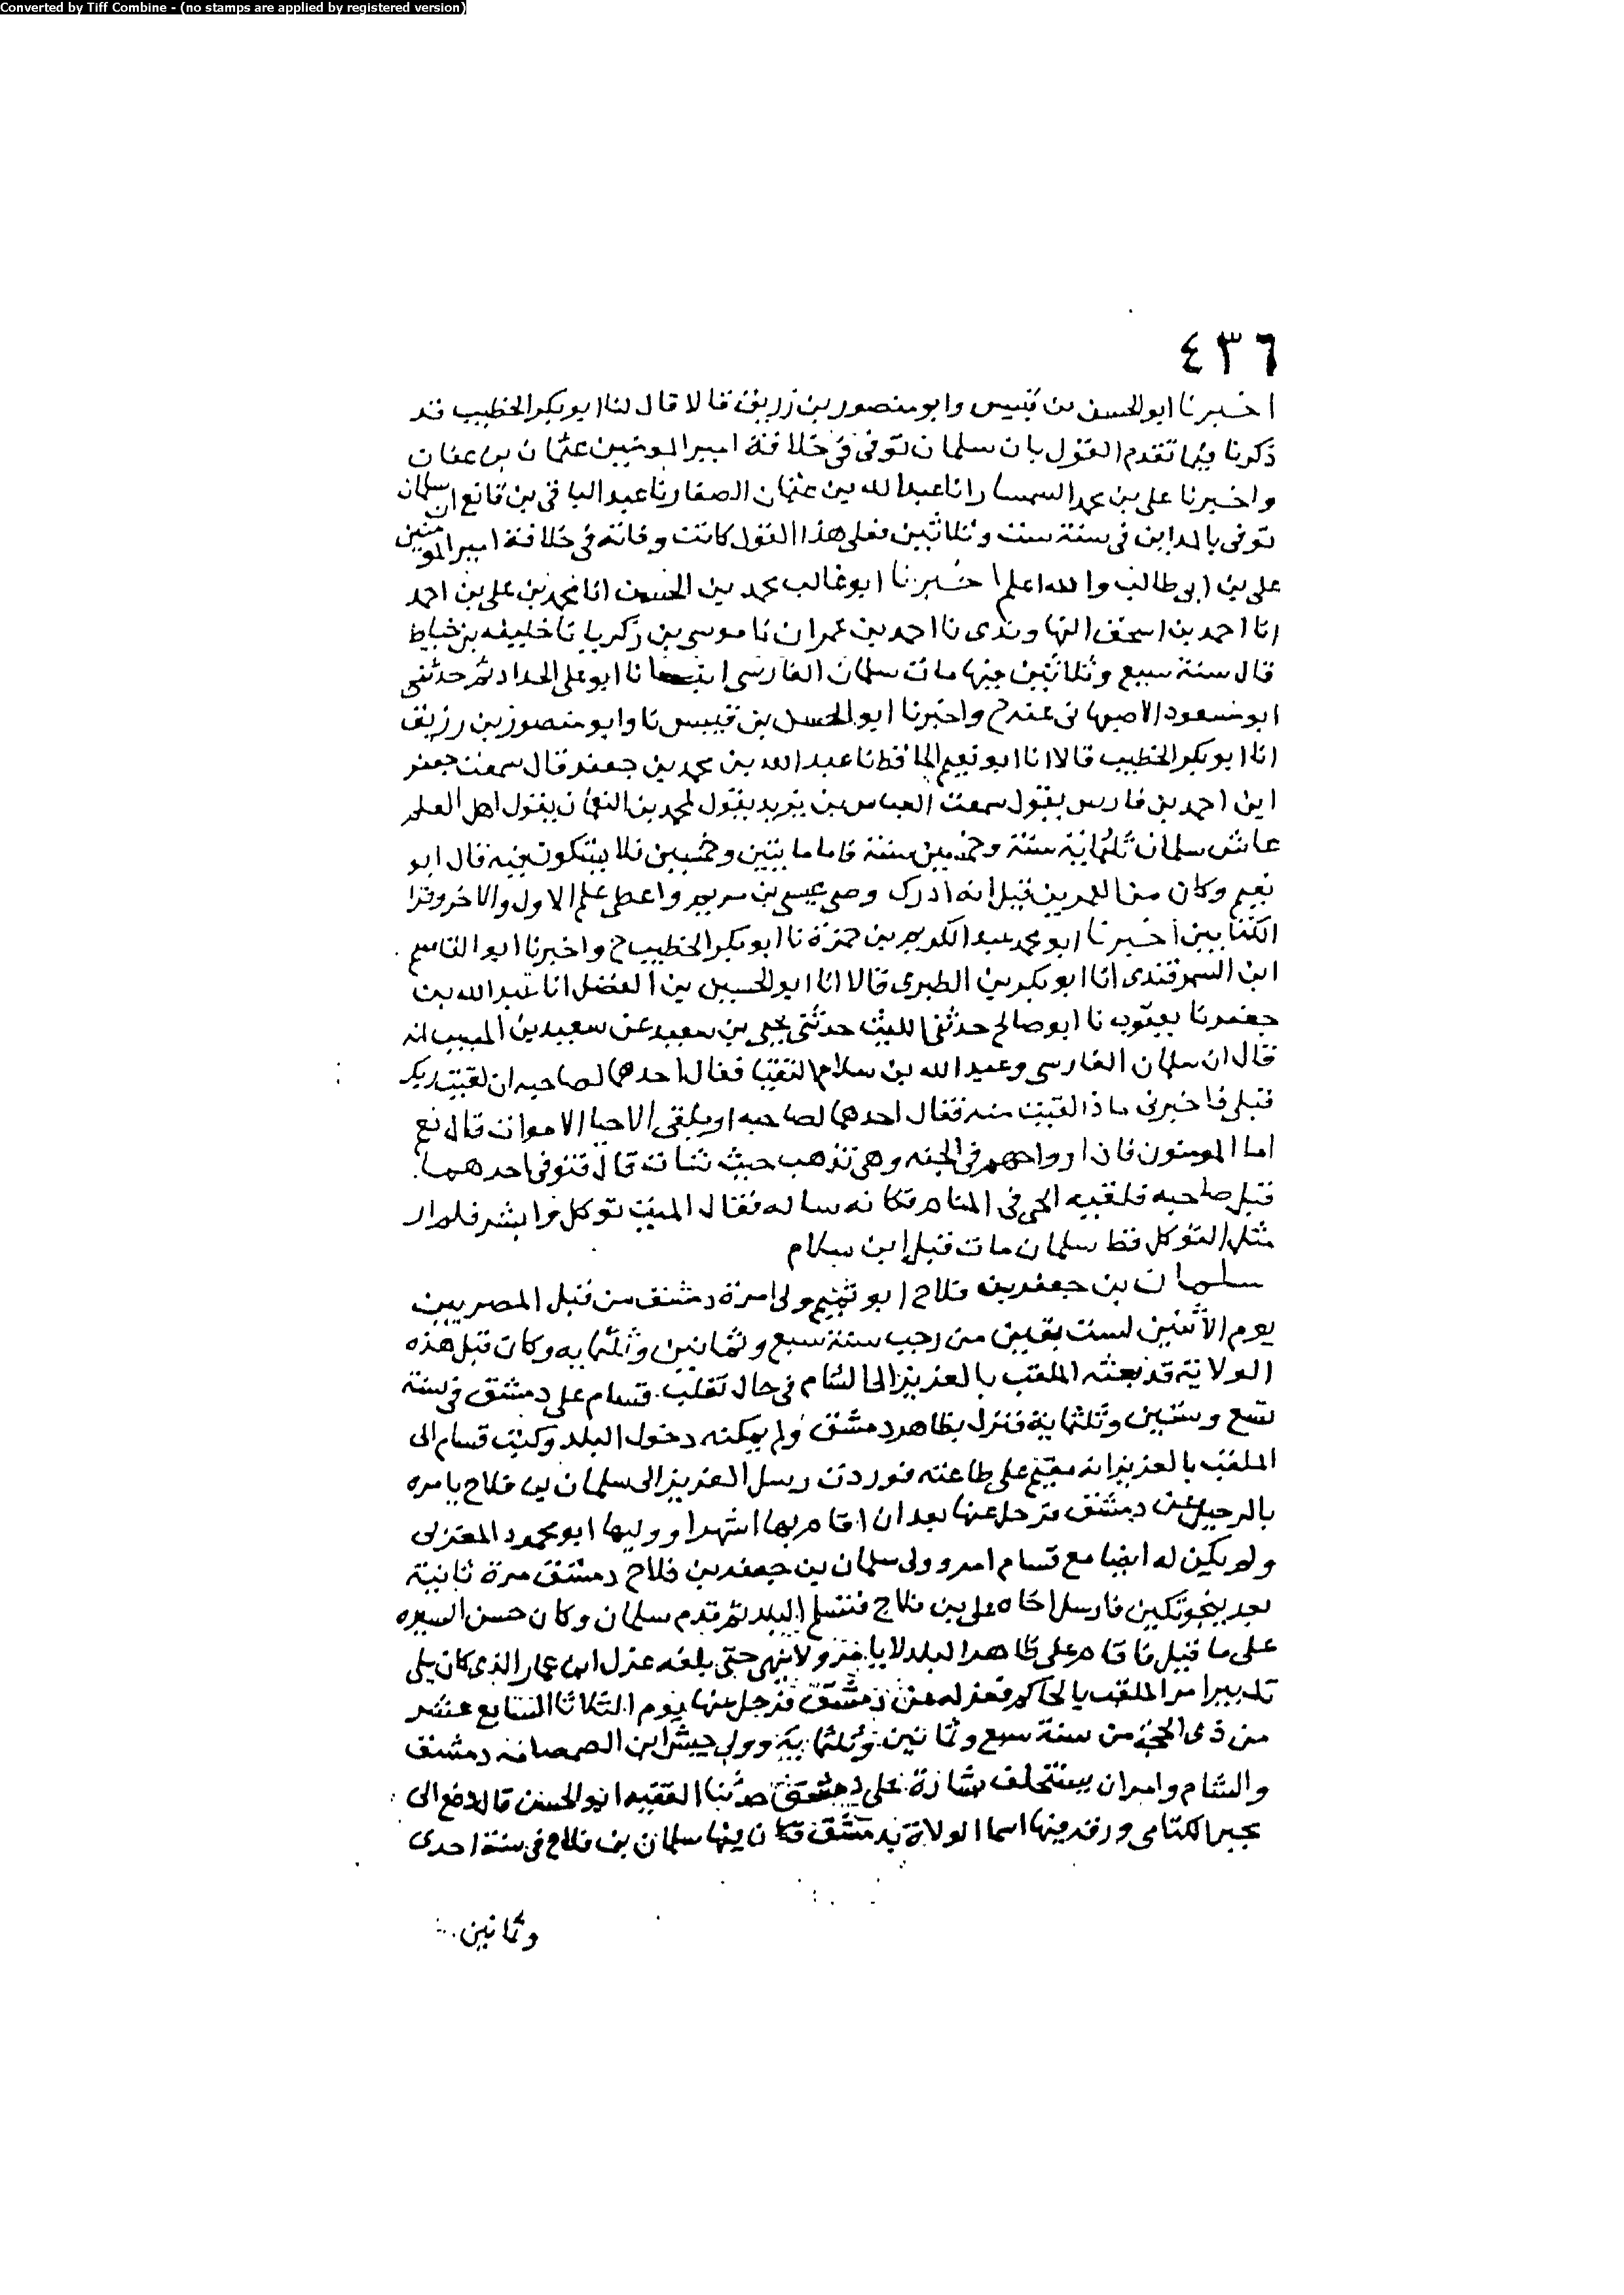 Converted by Tiff Combine - (no stamps are applied by registered version)
٤٣٦
اخبرنا ابو الحسن بن قبيس وابو منصور بن زريق قالا قال لنا ابو بكر الخطيب قد
ذكرنا فيما تقدم القول بان سلمان توفى في خلافة امير المومنين عثمان بن عفان
واخبرنا على بن محمد السمسار انا عبد الله بن عثمان الصفار نا عبد الباقى بن قانع ان سلمان
توفى بالمداين فى سنة ست وثلاثين فعلى هذا القول كانت وفاته فى خلافة امير المومنين
على بن ابى طالب والله اعلم اخبرنا ابو غالب محمد بن الحسن انا محمد بن على بن احمد
انا احمد بن اسحق النهاوندى نا احمد بن عمران نا موسى بن زكريا نا خليفه بن خياط
قال سنة سبع وثلاثين فيها مات سلمان الفارسى انبانا ابو على الحداد ثم حدثنى
ابو مسعود الاصبهانى عنه ح واخبرنا ابو الحسن بن قبيس نا وابو منصور بن رزيق
انا ابو بكر الخطيب قالا انا ابو نعيم الحافظ نا عبد الله بن محمد بن جعفر قال سمعت جعفر
ابن احمد بن فارس يقول سمعت العباس بن يزيد يقول لمحمد بن النعمان يقول اهل العلم
عاش سلمان ثلثماية سنة وخمسين سنة فاما مايتين وخمسين فلا يشكون فيه قال ابو
نعيم وكان من المعمرين قيل انه ادرك وصى عيسى بن مريم واعطى علم الاول والاخر وقرا
الكتابين اخبرنا ابو محمد عبد الكريم بن حمزة نا ابو بكر الخطيب ح واخبرنا ابو القاسم
ابن السمرقندى انا ابو بكر بن الطبرى قالا انا ابو الحسين بن الفضل انا عبد الله بن
جعفر نا يعقوب نا ابو صالح حدثنى الليث حدثنى يحيى بن سعيد عن سعيد بن المسيب انه
قال ان سلمان الفارسى وعبد الله بن سلام التقيا فقال احدهما لصاحبه ان لقيت ربك
قبلى فاخبرنى ماذا لقيت منه فقال احدهما لصاحبه اويلقى الاحيا الاموات قال نعم
اما المومنون فان ارواحهم فى الجنه وهى تذهب حيث شات قال فتوفى احدهما
قبل صاحبه فلقيه الحى فى المنام فكانه ساله فقال الميت توكل وابشر فلم ار
مثل التوكل قط سلمان مات قبل ابن سلام
سلمان بن جعفر بن فلاح ابو تميم ولى امرة دمشق من قبل المصريين
يوم الاثنين لست بقين من رجب سنة سبع وثمانين وثلثمايه وكان قبل هذه
الولاية قد بعثه الملقب بالعزيز الى الشام فى حال تغلب قسام على دمشق فى سنة
تسع وستين وثلثماية فنزل بظاهر دمشق ولم يمكنه دخول البلد وكتب قسام الى
الملقب بالعزيز انه مقيم على طاعته فوردت رسل العزيز الى سلمان بن فلاح يامره
بالرحيل عن دمشق فرحل عنها بعد ان اقام بها اشهرا ووليها ابو محمود المغربى
ولم يكن له ايضا مع قسام امر وولى سلمان بن جعفر بن فلاح دمشق مرة ثانية
بعد ينجوتكين فارسل اخاه على بن فلاح فتسلم البلد ثم قدم سلمان وكان حسن السيره
على ما قيل فاقام على ظاهر البلد لا يامر ولا ينهى حتى بلغه عزل ابن عمار الذى كان يلى
تدبير امر الملقب بالحاكم فعزله عن دمشق فرحل عنها يوم الثلاثا السابع عشر
من ذى الحجة من سنة سبع وثمانين وثلثماية وولى جيش ابن الصمصامه دمشق
والشام وامر ان يستخلف بشارة على دمشق حدثنا الفقيه ابو الحسن قال دفع الى
مجير الكتامى ورقه فيها اسما الولاة بدمشق فكان فيها سلمان بن فلاح فى سنة احدى
وثمانين